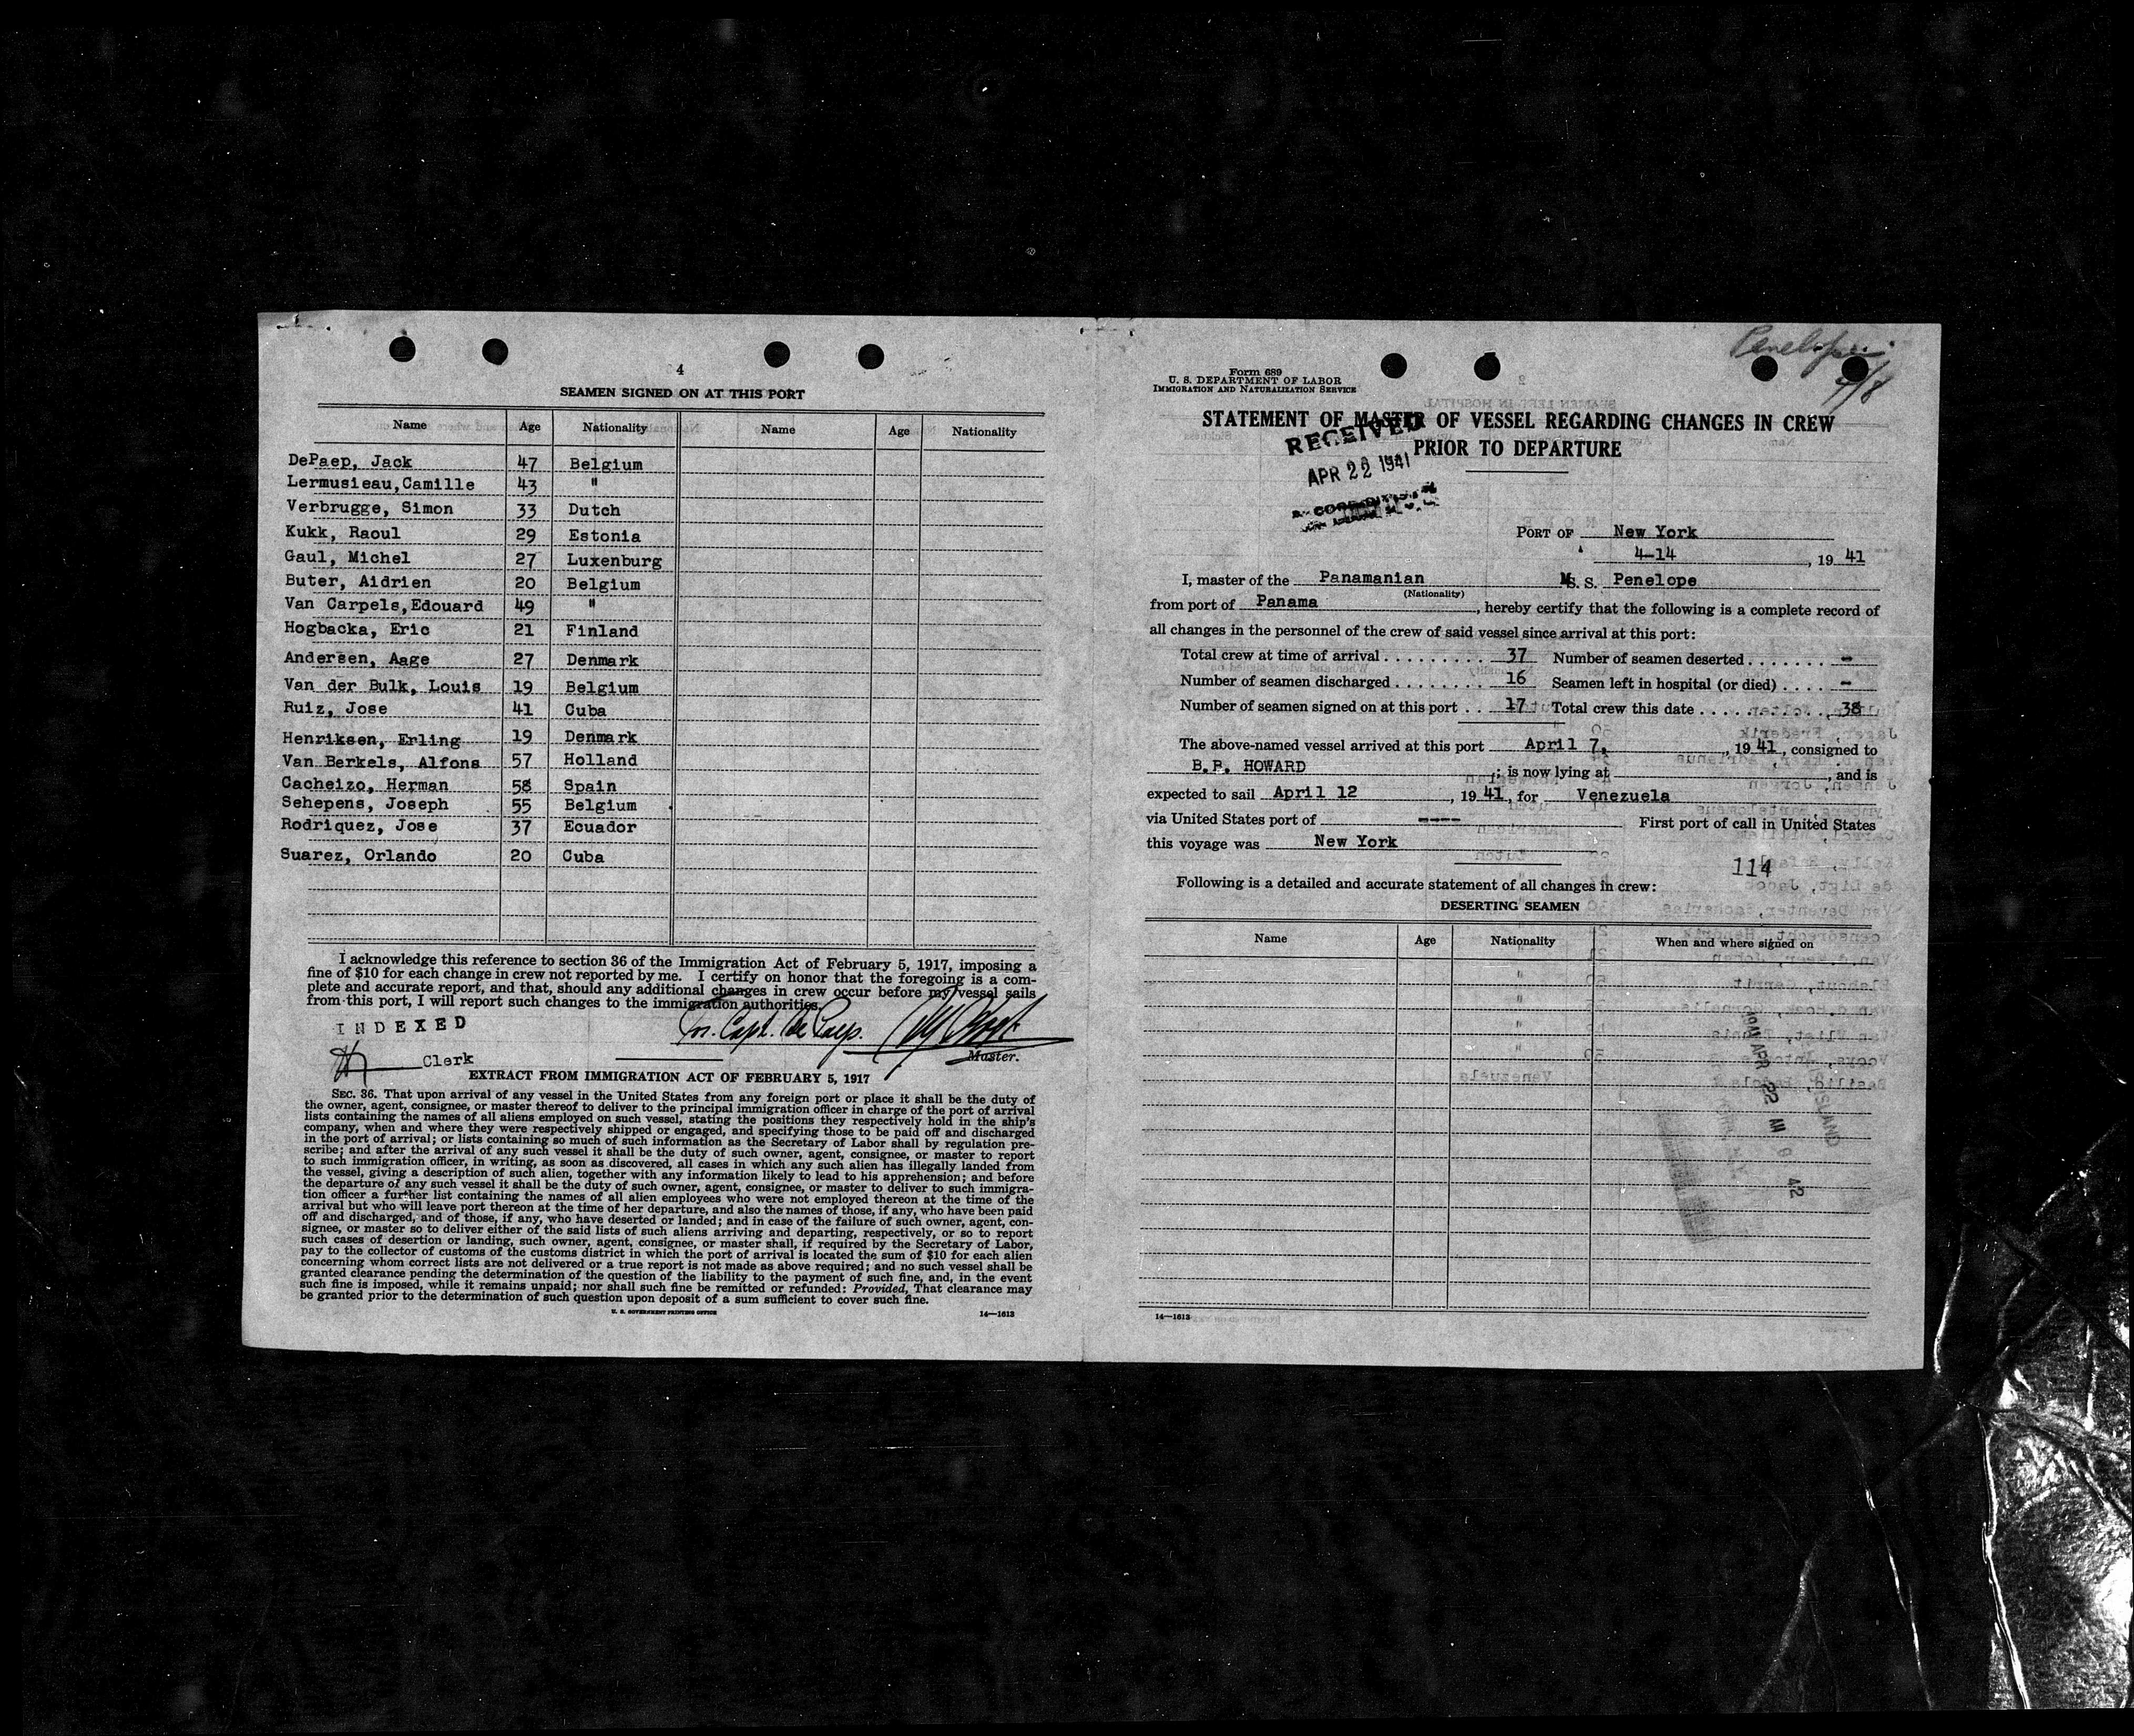 4
SEAMEN SIGNED ON AT THIS PORT
Name Age Nationality Name Age Nationality
DePaep, Jack 47 Belgium
Lermusieau,Camille 43 "
Verbrugge, Simon 33 Dutch
Kukk, Raoul 29 Estonia
Gaul, Michel 27 Luxenburg
Buter, Aidrien 20 Belgium
Van Carpels,Edouard 49 "
Hogbacka, Eric 21 Finland
Andersen, Aage 27 Denmark
Van der Bulk, Louis 19 Belgium
Ruiz, Jose 41 Cuba
Henriksen, Erling 19 Denmark
Van Berkels, Alfons 57 Holland
Cacheizo, Herman 58 Spain
Sehepens, Joseph 55 Belgium
Rodriquez, Jose 37 Ecuador
Suarez, Orlando 20 Cuba
I acknowledge this reference to section 36 of the Immigration Act of February 5, 1917, imposing a
fine of $10 for each change in crew not reported by me. I certify on honor that the foregoing is a com-
plete and accurate report, and that, should any additional changes in crew occur before my vessel sails
from this port, I will report such changes to the immigration authorities.
INDEXED
for Capt. De Paep.
Clerk
Master.
EXTRACT FROM IMMIGRATION ACT OF FEBRUARY 5, 1917
SEC. 36. That upon arrival of any vessel in the United States from any foreign port or place it shall be the duty of
the owner, agent, consignee, or master thereof to deliver to the principal immigration officer in charge of the port of arrival
lists containing the names of all aliens employed on such vessel, stating the positions they respectively hold in the ship's
company, when and where they were respectively shipped or engaged, and specifying those to be paid off and discharged
in the port of arrival; or lists containing so much of such information as the Secretary of Labor shall by regulation pre-
scribe; and after the arrival of any such vessel it shall be the duty of such owner, agent, consignee, or master to report
to such immigration officer, in writing, as soon as discovered, all cases in which any such alien has illegally landed from
the vessel, giving a description of such alien, together with any information likely to lead to his apprehension; and before
the departure of any such vessel it shall be the duty of such owner, agent, consignee, or master to deliver to such immigra-
tion officer a further list containing the names of all alien employees who were not employed thereon at the time of the
arrival but who will leave port thereon at the time of her departure, and also the names of those, if any, who have been paid
off and discharged, and of those, if any, who have deserted or landed; and in case of the failure of such owner, agent, con-
signee, or master so to deliver either of the said lists of such aliens arriving and departing, respectively, or so to report
such cases of desertion or landing, such owner, agent, consignee, or master shall, if required by the Secretary of Labor,
pay to the collector of customs of the customs district in which the port of arrival is located the sum of $10 for each alien
concerning whom correct lists are not delivered or a true report is not made as above required; and no such vessel shall be
granted clearance pending the determination of the question of the liability to the payment of such fine, and, in the event
such fine is imposed, while it remains unpaid; nor shall such fine be remitted or refunded: Provided, That clearance may
be granted prior to the determination of such question upon deposit of a sum sufficient to cover such fine.
U. S. GOVERNMENT PRINTING OFFICE 14—1613
Penelope
4/8
Form 689
U. S. DEPARTMENT OF LABOR
IMMIGRATION AND NATURALIZATION SERVICE
STATEMENT OF MASTER OF VESSEL REGARDING CHANGES IN CREW
PRIOR TO DEPARTURE
RECEIVED
APR 22 1941
PORT OF New York
4-14, 19 41
I, master of the Panamanian M S. S. Penelope
(Nationality)
from port of Panama, hereby certify that the following is a complete record of
all changes in the personnel of the crew of said vessel since arrival at this port:
Total crew at time of arrival . . . . . . . . . 37 Number of seamen deserted . . . . . . . -
Number of seamen discharged . . . . . . . . 16 Seamen left in hospital (or died) . . . . -
Number of seamen signed on at this port . . 17 Total crew this date . . . . . . . . . . . 38
The above-named vessel arrived at this port April 7, , 19 41, consigned to
B.P. HOWARD ; is now lying at , and is
expected to sail April 12, 19 41, for Venezuela
via United States port of ---- First port of call in United States
this voyage was New York
114
Following is a detailed and accurate statement of all changes in crew:
DESERTING SEAMEN
Name Age Nationality When and where signed on
1941 APR 22 AM 9 42
14—1613